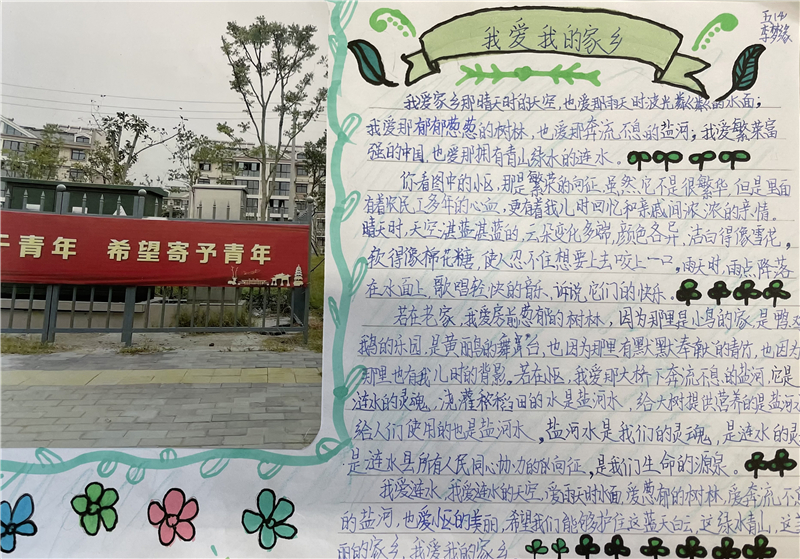 于青年 希望寄予青年
我爱我的家乡
五(4)
李梦缘
我爱家乡那晴天时的天空,也爱那雨天时波光粼粼的水面;
我爱那郁郁葱葱的树林,也爱那奔流不息的盐河;我爱繁荣富
强的中国,也爱那拥有青山绿水的涟水。
你看图中的小区,那是繁荣的向征,虽然它不是很繁华,但是里面
有着农民工多年的心血,更有着我儿时回忆和亲戚间浓浓的亲情。
晴天时,天空湛蓝湛蓝的,云朵变化多端,颜色各异,洁白得像雪花,
软得像棉花糖,使人忍不住想要上去咬上一口,雨天时,雨点降落
在水面上,歌唱轻快的音乐,诉说它们的快乐。
若在老家,我爱房前葱郁的树林,因为那里是小鸟的家,是鸭
鹅的乐园,是黄丽鸟的舞台,也因为那里有默默奉献的青竹,也因为
那里也有我儿时的背影。若在小区,我爱那大桥下奔流不息的盐河,它是
涟水的灵魂,浇灌稻田的水是盐河水,给大树提供营养的是盐河
给人们使用的也是盐河水,盐河水是我们的灵魂,是涟水的灵
是涟水县所有人民同心协力的的向征,是我们生命的源泉。
我爱涟水,我爱涟水的天空,爱雨天时水面,爱葱郁的树林,爱奔流不
的盐河,也爱小区的美丽,希望我们能够护住这蓝天白云,这绿水青山,这
丽的家乡,我爱我的家乡